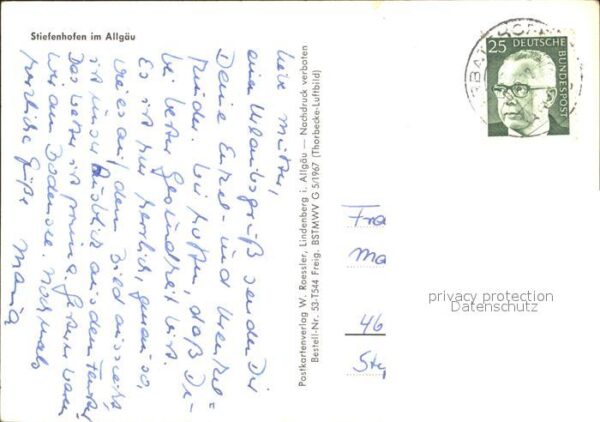 Stiefenhofen im Allgäu
Liebe Mutter,
einen Urlaubsgruß senden Dir
Deine Enkel- und Urenkel=
kinder. Wir hoffen, daß Du
bei bester Gesundheit bist.
Es ist hier herrlich, genau so,
wie es auf dem Bild aussieht,
ist unser Ausblick aus dem Fenster
Das Wetter ist prima. Gestern waren
wir am Bodensee. Nochmals
herzliche Grüße Maria
Postkartenverlag W. Roessler, Lindenberg i. Allgäu — Nachdruck verboten
Bestell-Nr. 53-T544 Freig. BSTMWV G 5/1967 (Thorbecke-Luftbild)
25 DEUTSCHE
BUNDESPOST
Fra
Ma
46
privacy protection
Datenschutz